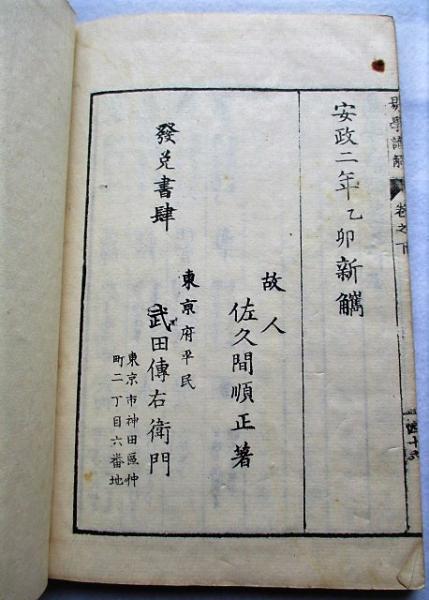 易學講解
卷之下
安政二年乙卯新鐫
故人
佐久間順正著
東京府平民
武田傳右衛門
東京市神田區仲
町二丁目六番地
發兌書肆